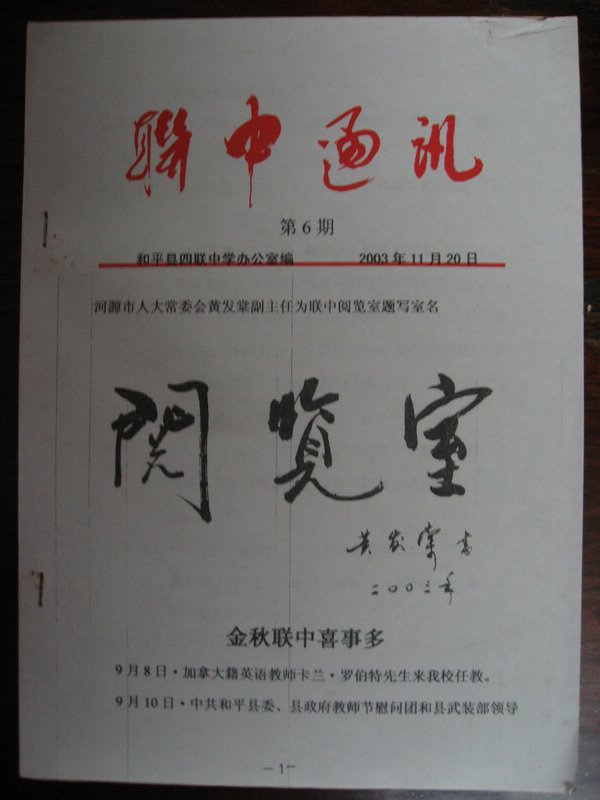 聯中通訊
第6期
和平县四联中学办公室编 2003年11月20日
河源市人大常委会黄发棠副主任为联中阅览室题写室名
閱览室
黄发棠書
二00三年
金秋联中喜事多
9月8日·加拿大籍英语教师卡兰·罗伯特先生来我校任教。
9月10日·中共和平县委、县政府教师节慰问团和县武装部领导
—1—